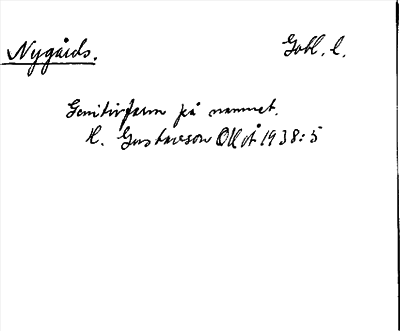 Nygårds. Gotl. l.
Genitivform på namnet.
H. Gustavson OUÅ 1938:5